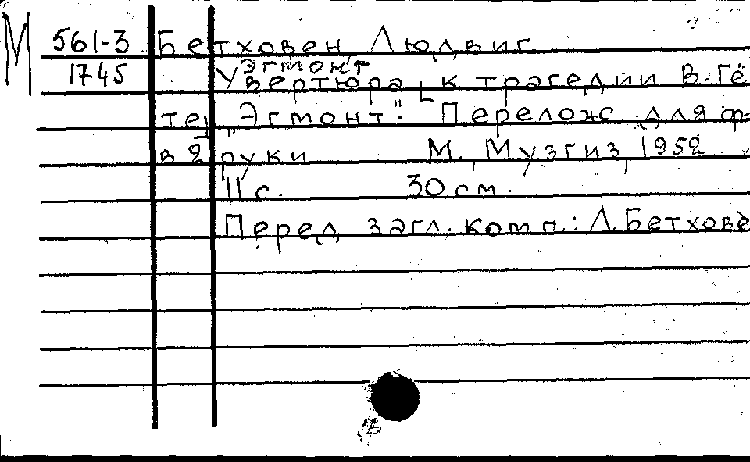 М 561-3 Бетховен Людвиг
1745 Эгмонт
Увертюра к трагедии В. Гё
те „Эгмонт". Перелож для ф-
в 2 руки М., Музгиз, 1952
11 с. 30 см.
Перед загл. комп.: Л. Бетхове